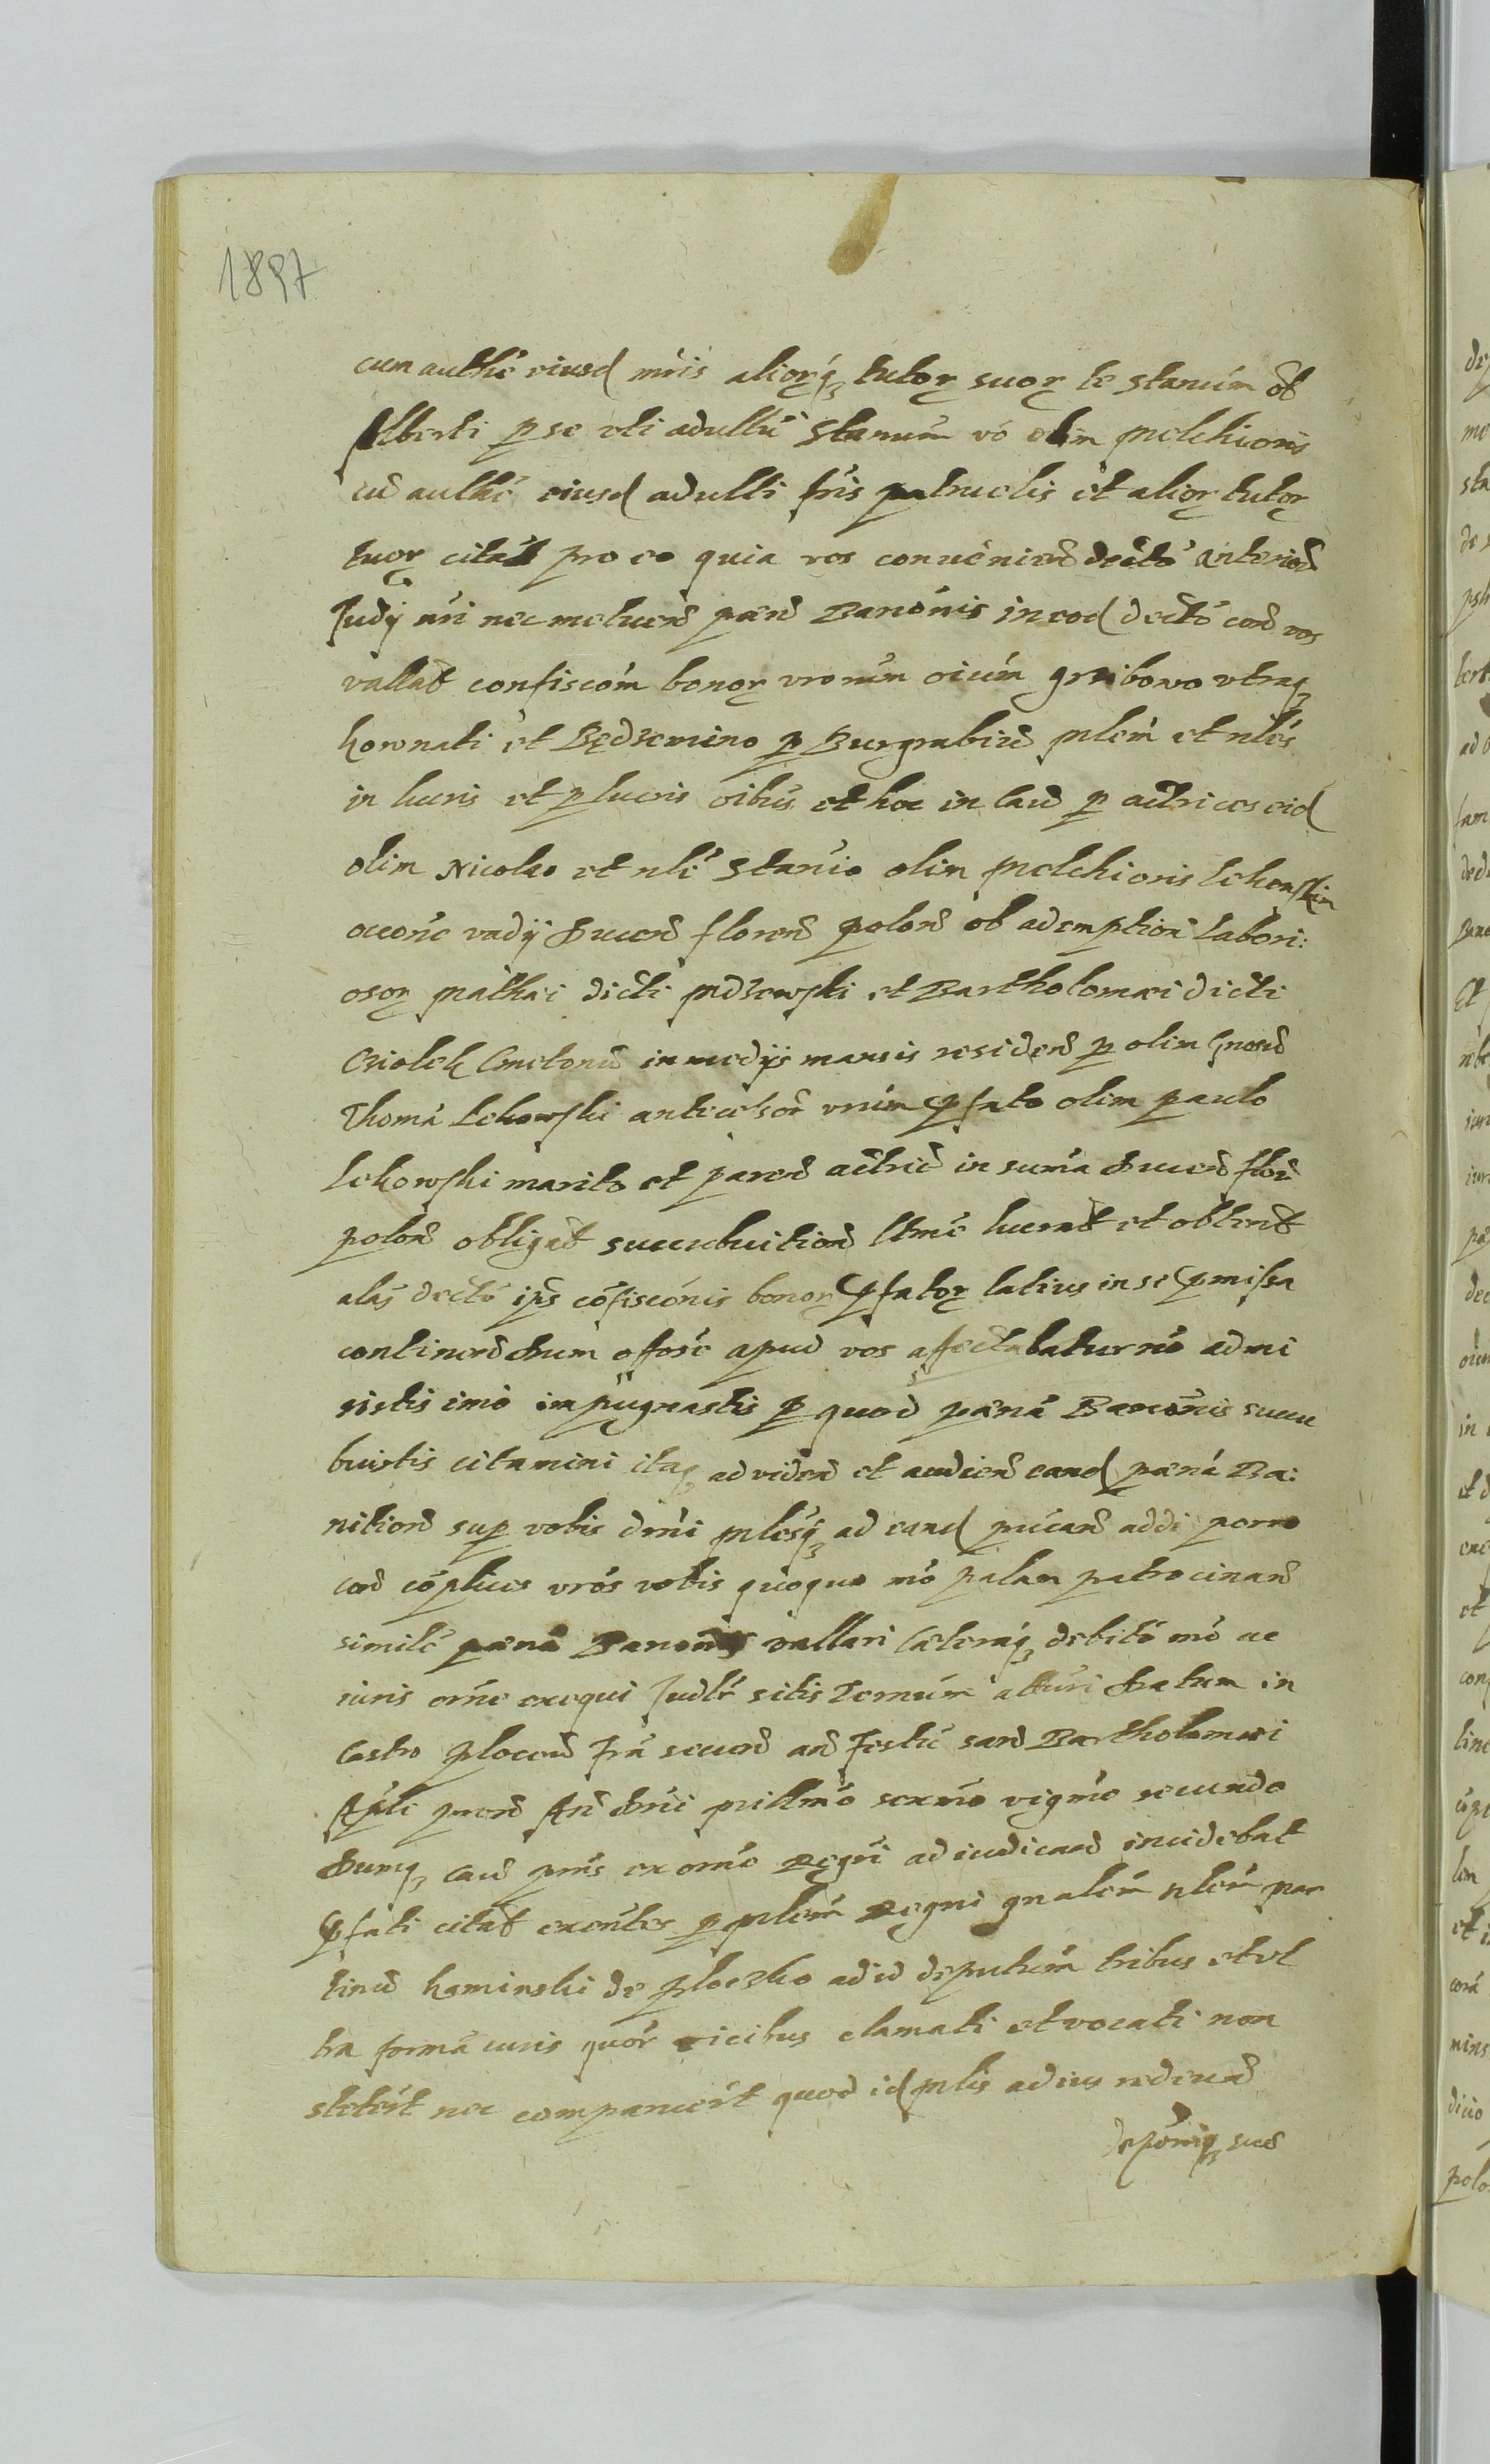 1897
cum authē eiusd mris aliorq tutor suor te stanum ol
Alberti p se uti adultū Stanum vo olim Melchioris
cū authē eiusd adulti fris patruelis et alior tutor
tuor citat pro eo quia vos contravenien decto anteriori
Judÿ nri nec metuen paen Banonis in eod decto con vos
vallat confiscom bonor vrorum oium grzibowo utraq
kownati et Będzemino p Burgrabiu
in lucris et p lucris oibus et hoc in Cau p actrices eid
olim Nicolao et nli Stanio olim Melchioris Lekowskim
occone vadÿ Ducen floren polon ob ademption labori:
osor Mathæi dicti et Bartholomæi dicti
Cmetonu in medÿs mansis residen p olim Gnosu
Thoma Lekowski antecesor vrum pfato olim Paulo
Lekowski marito et paren actric in suma Ducen flor
polon obligat succubuition ltme lucrat et obtent
alas decto ips cofisconis bonor pfator latius in se pmissa
continen dum offose apud vos affectabatur no admi
sistis imo impugnastis p quod paena Banonis succu
buistis citamini itaq ad viden et audien eand paena Ba:
nition sup vobis dmi mlesq ad eand addi porro
con coplices vros vobis quoquo mo palam patrocinan
simile paena Banonis vallari Caeteraq debito mo ac
iuris orne exequi Judlr sitis Termum atturi Datum in
Castro Plocen fria secun an Festu san Bartholomæi
Apli An Dni Millmo sexmo vigmo secundo
Dumq Cau pns ex orne Regni ad iudican incidebat
pfati citat exentes p mlem Regni gnalem nlem Mar
tinu Kaminski de Ploczko ad id deputum tribus et ul
tra forma iuris quor vicibus clamati et vocati non
steterut nec comparuerut quod id mlis ad ius redeun
deponiq sua